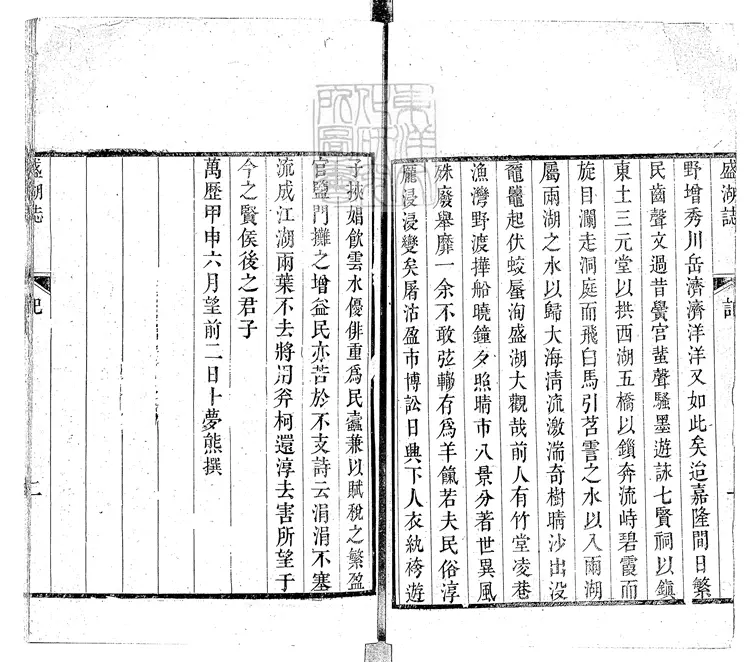 盛湖誌
記
一
野增秀川岳濟濟洋洋又如此矣迨嘉隆間日繁
民齒聲文過昔黌宮蜚聲騷墨遊詠七賢祠以鎭
東土三元堂以拱西湖五橋以鎖奔流峙碧霞而
旋目瀾走洞庭而飛白馬引苕霅之水以入兩湖
屬兩湖之水以歸大海清流激湍奇樹晴沙出没
黿鼉起伏蛟蜃洵盛湖大觀哉前人有竹堂凌巷
漁灣野渡舽船曉鐘夕照晴市八景分著世異風
殊廢舉靡一余不敢弦轍有爲羊餼若夫民俗淳
龐浸浸變矣屠沽盈市博訟日興下人衣紈袴遊
子挾娼飲雲水優俳重爲民蠹兼以賦稅之繁盈
官鹽門攤之增益民亦苦於不支詩云涓涓不塞
流成江湖兩葉不去將用斧柯還淳去害所望于
今之賢侯後之君子
萬歷甲申六月望前二日卜夢熊撰
盛湖誌
記
二
東洋文化研究所圖書